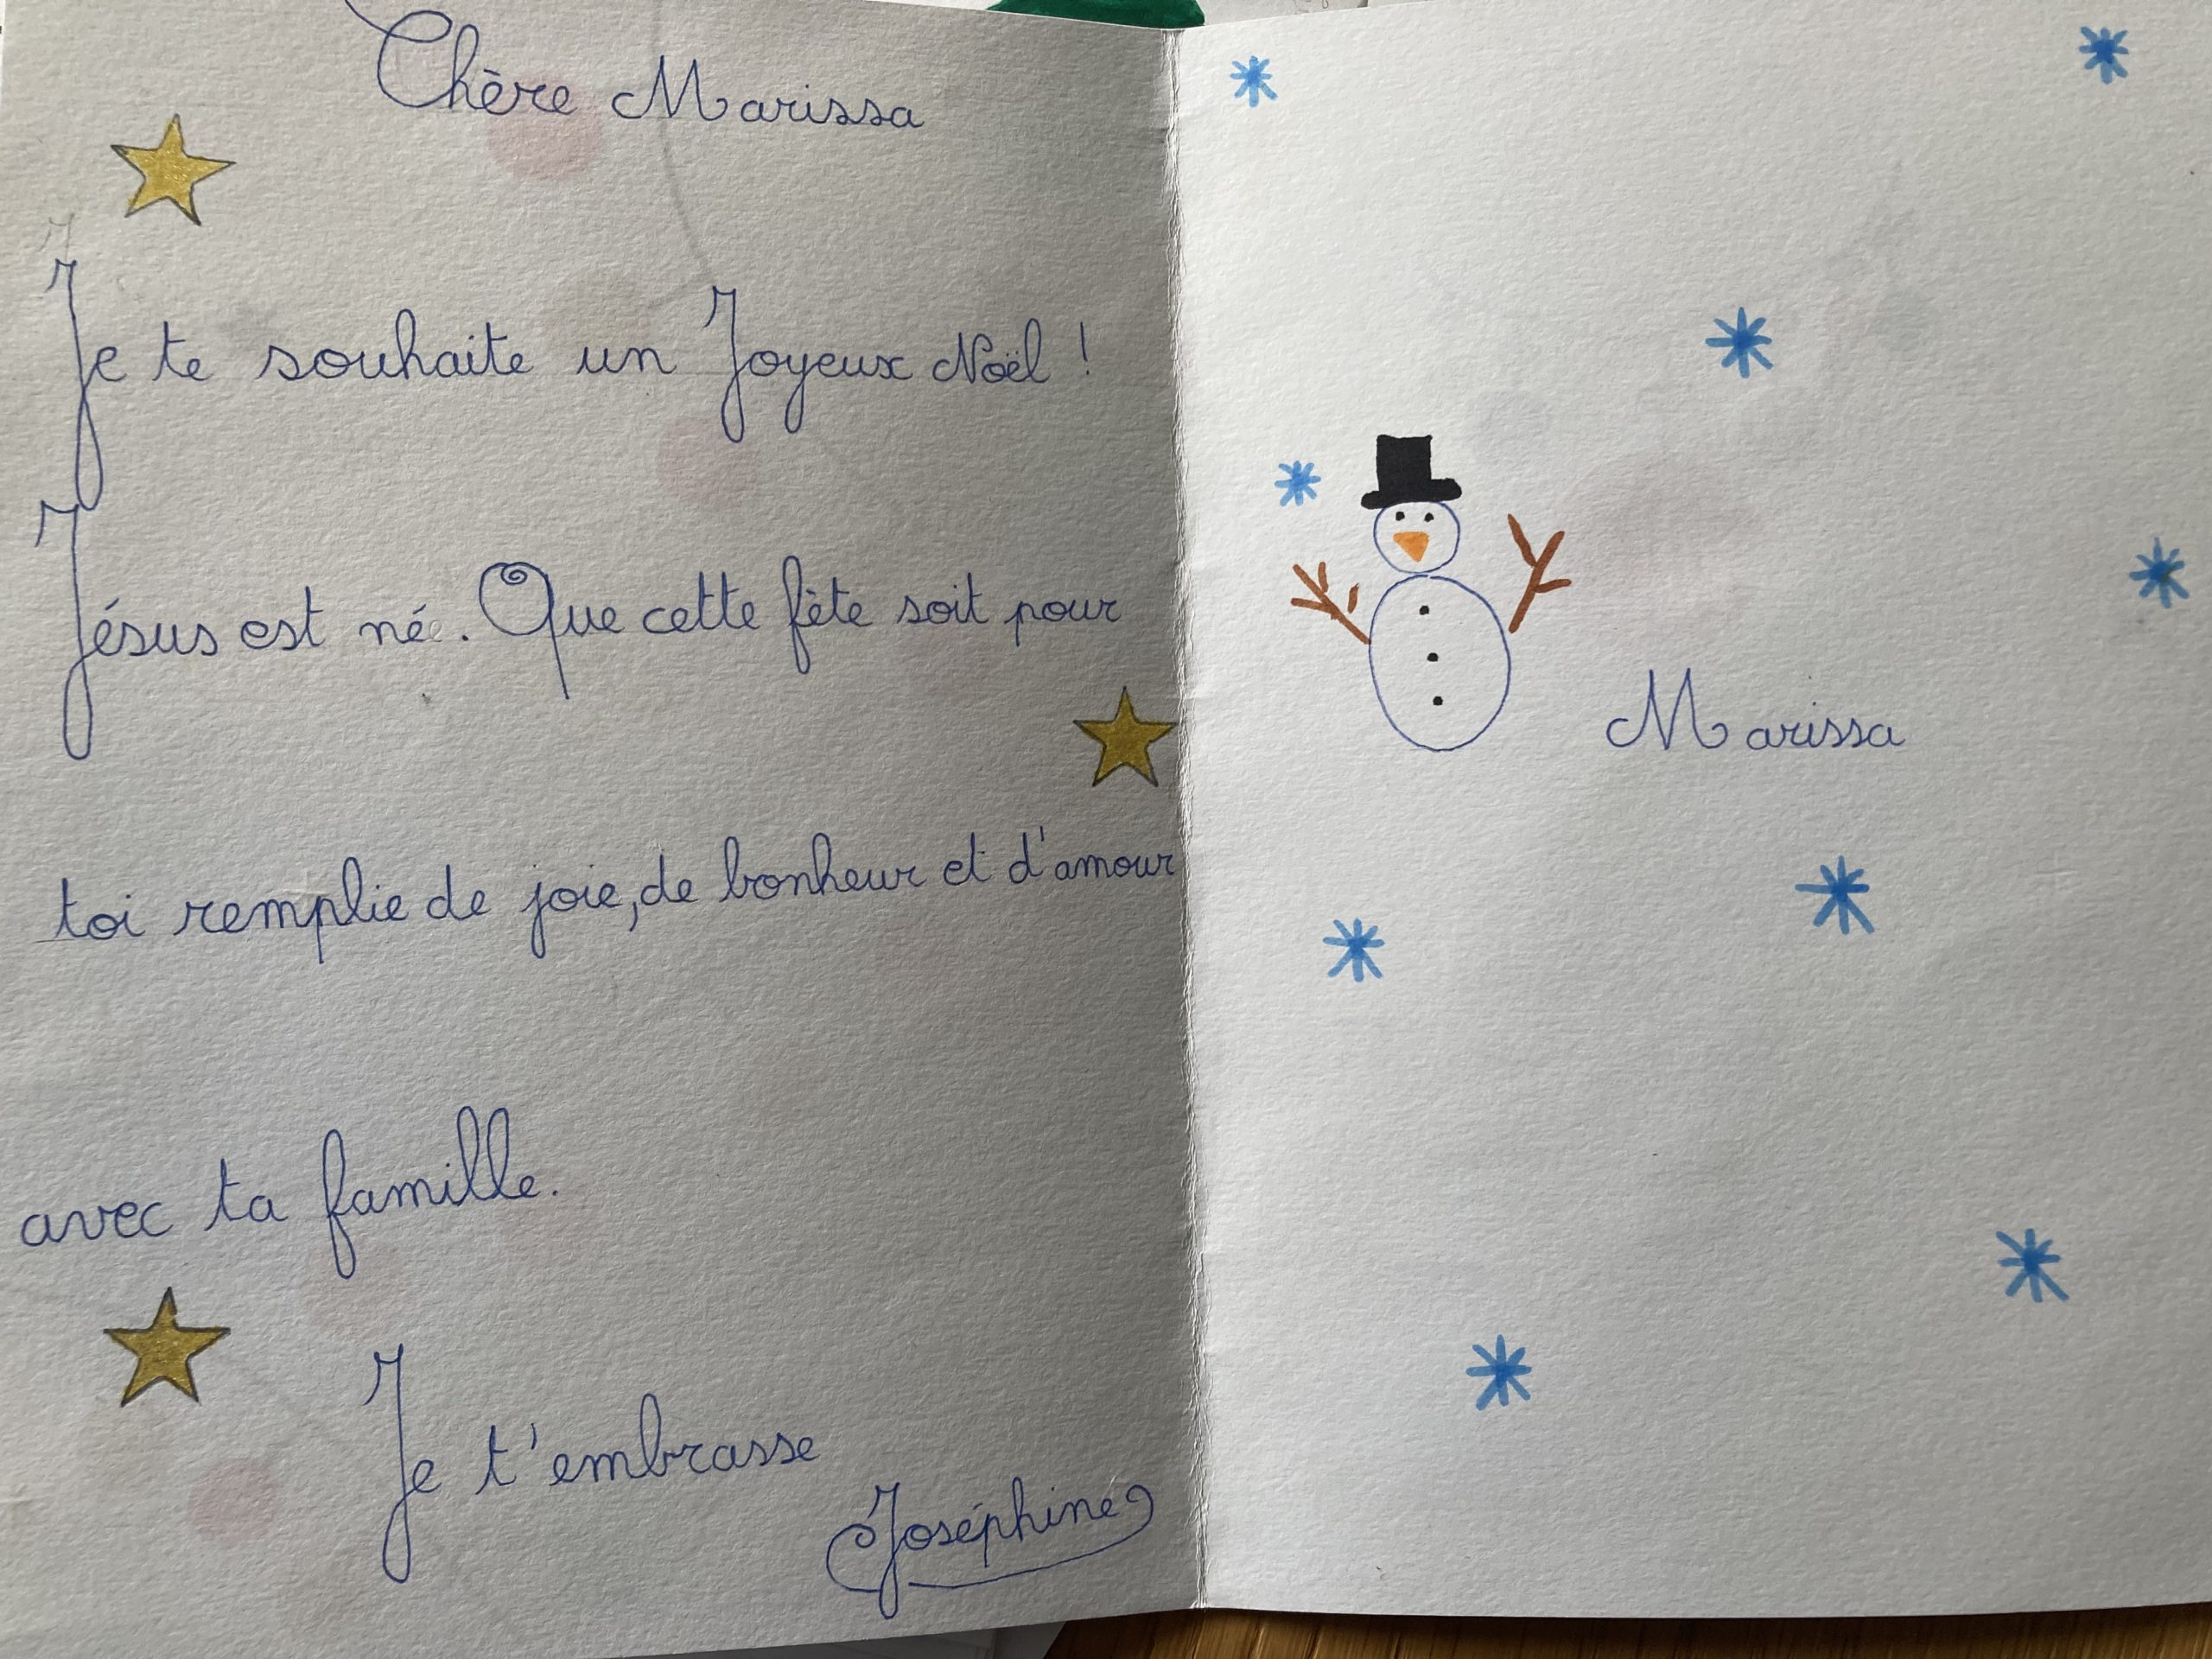 Chère Marissa
Je te souhaite un Joyeux Noël !
Jésus est né. Que cette fête soit pour
toi remplie de joie, de bonheur et d'amour
avec ta famille.
Je t'embrasse
Joséphine
Marissa